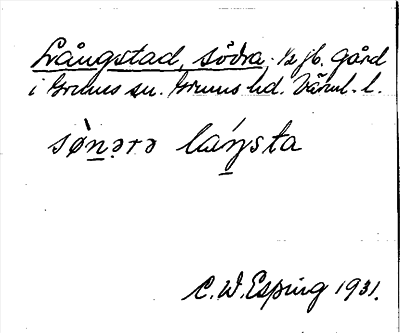 Långstad, södra. 1/2 jb. Gård
i Grums sn. Grums hd. Värml. l.
sø̀nərə laŋ́sta
C. W. Esping 1931.